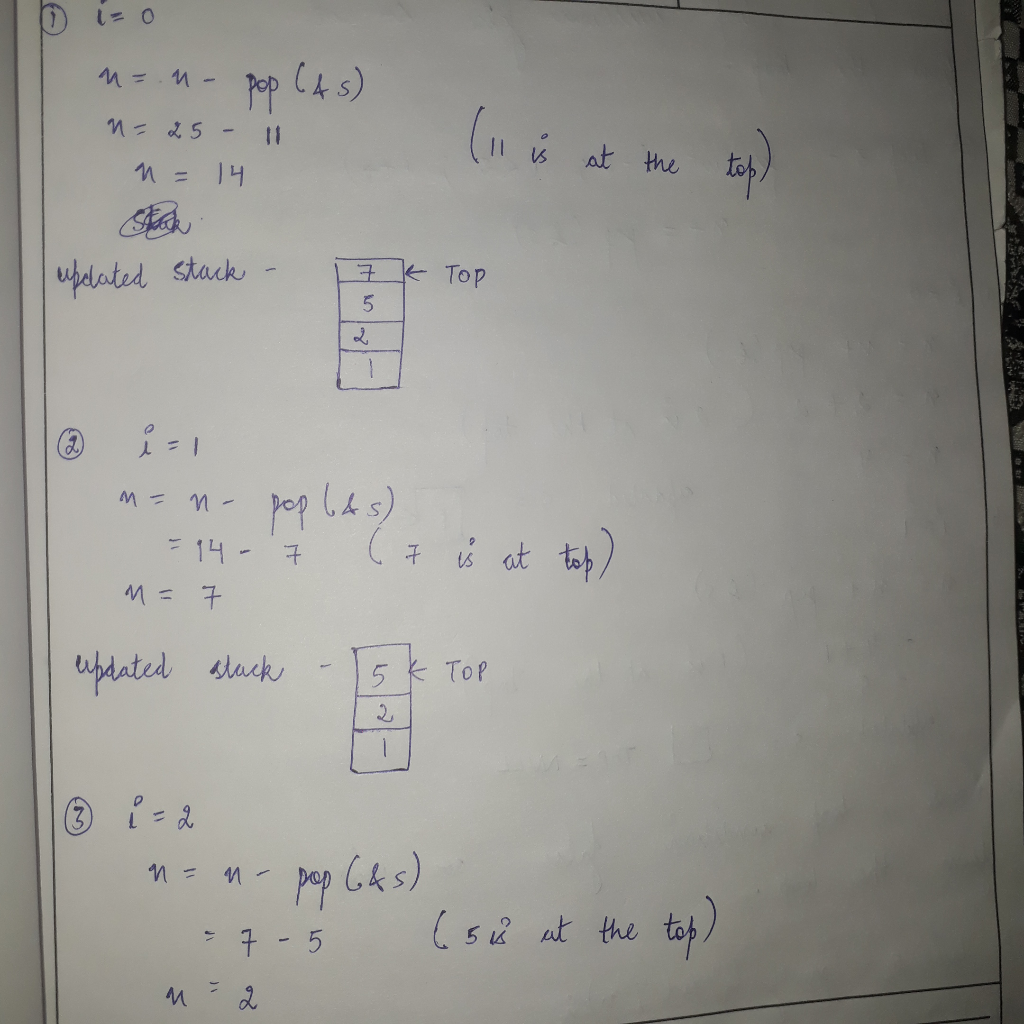 ① i = 0
n = n - pop (&s)
n = 25 - 11 (11 is at the top)
n = 14
updated stack - 7 ← TOP
5
2
1
② i = 1
n = n - pop (&s)
= 14 - 7 (7 is at top)
n = 7
updated stack - 5 ← TOP
2
1
③ i = 2
n = n - pop (&s)
= 7 - 5 (5 is at the top)
n = 2